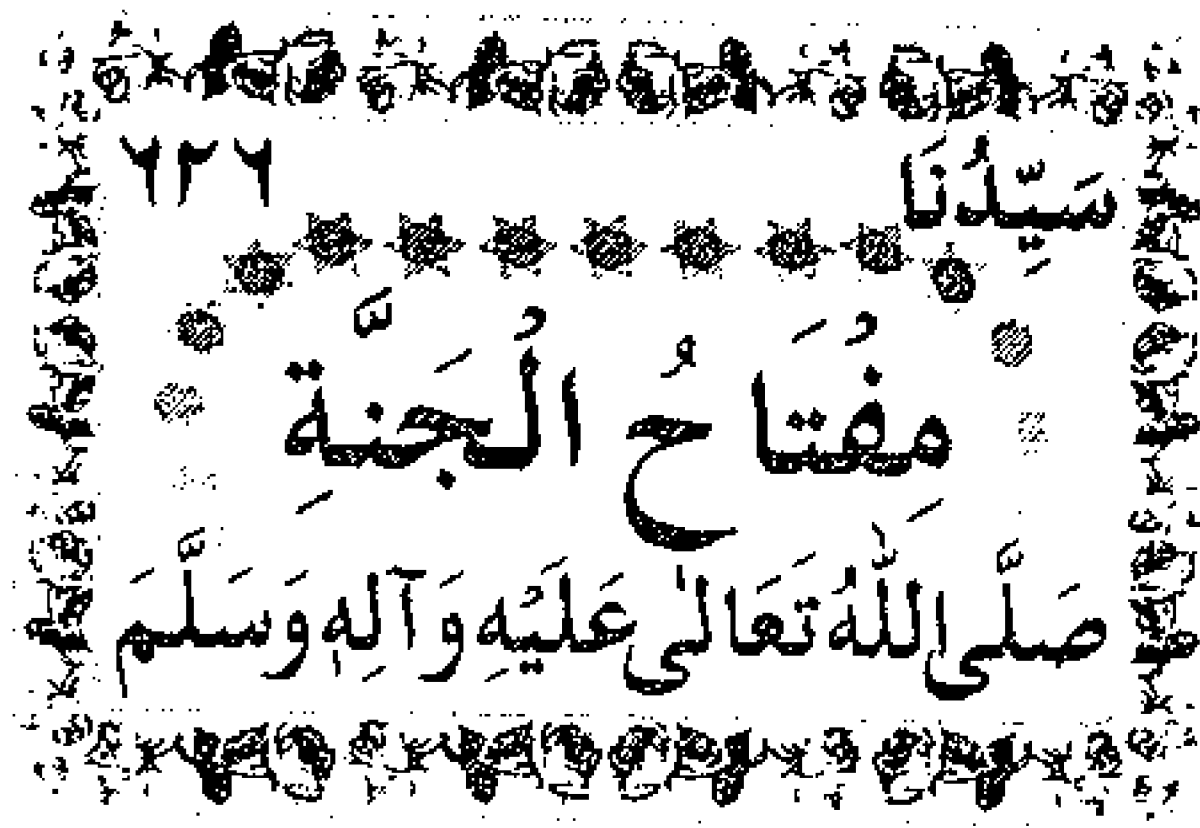 سَيِّدُنَا ٦٢٦
مِفْتَاحُ الْجَنَّةِ
صَلَّى اللّٰهُ تَعَالٰى عَلَيْهِ وَآلِهٖ وَسَلَّمَ